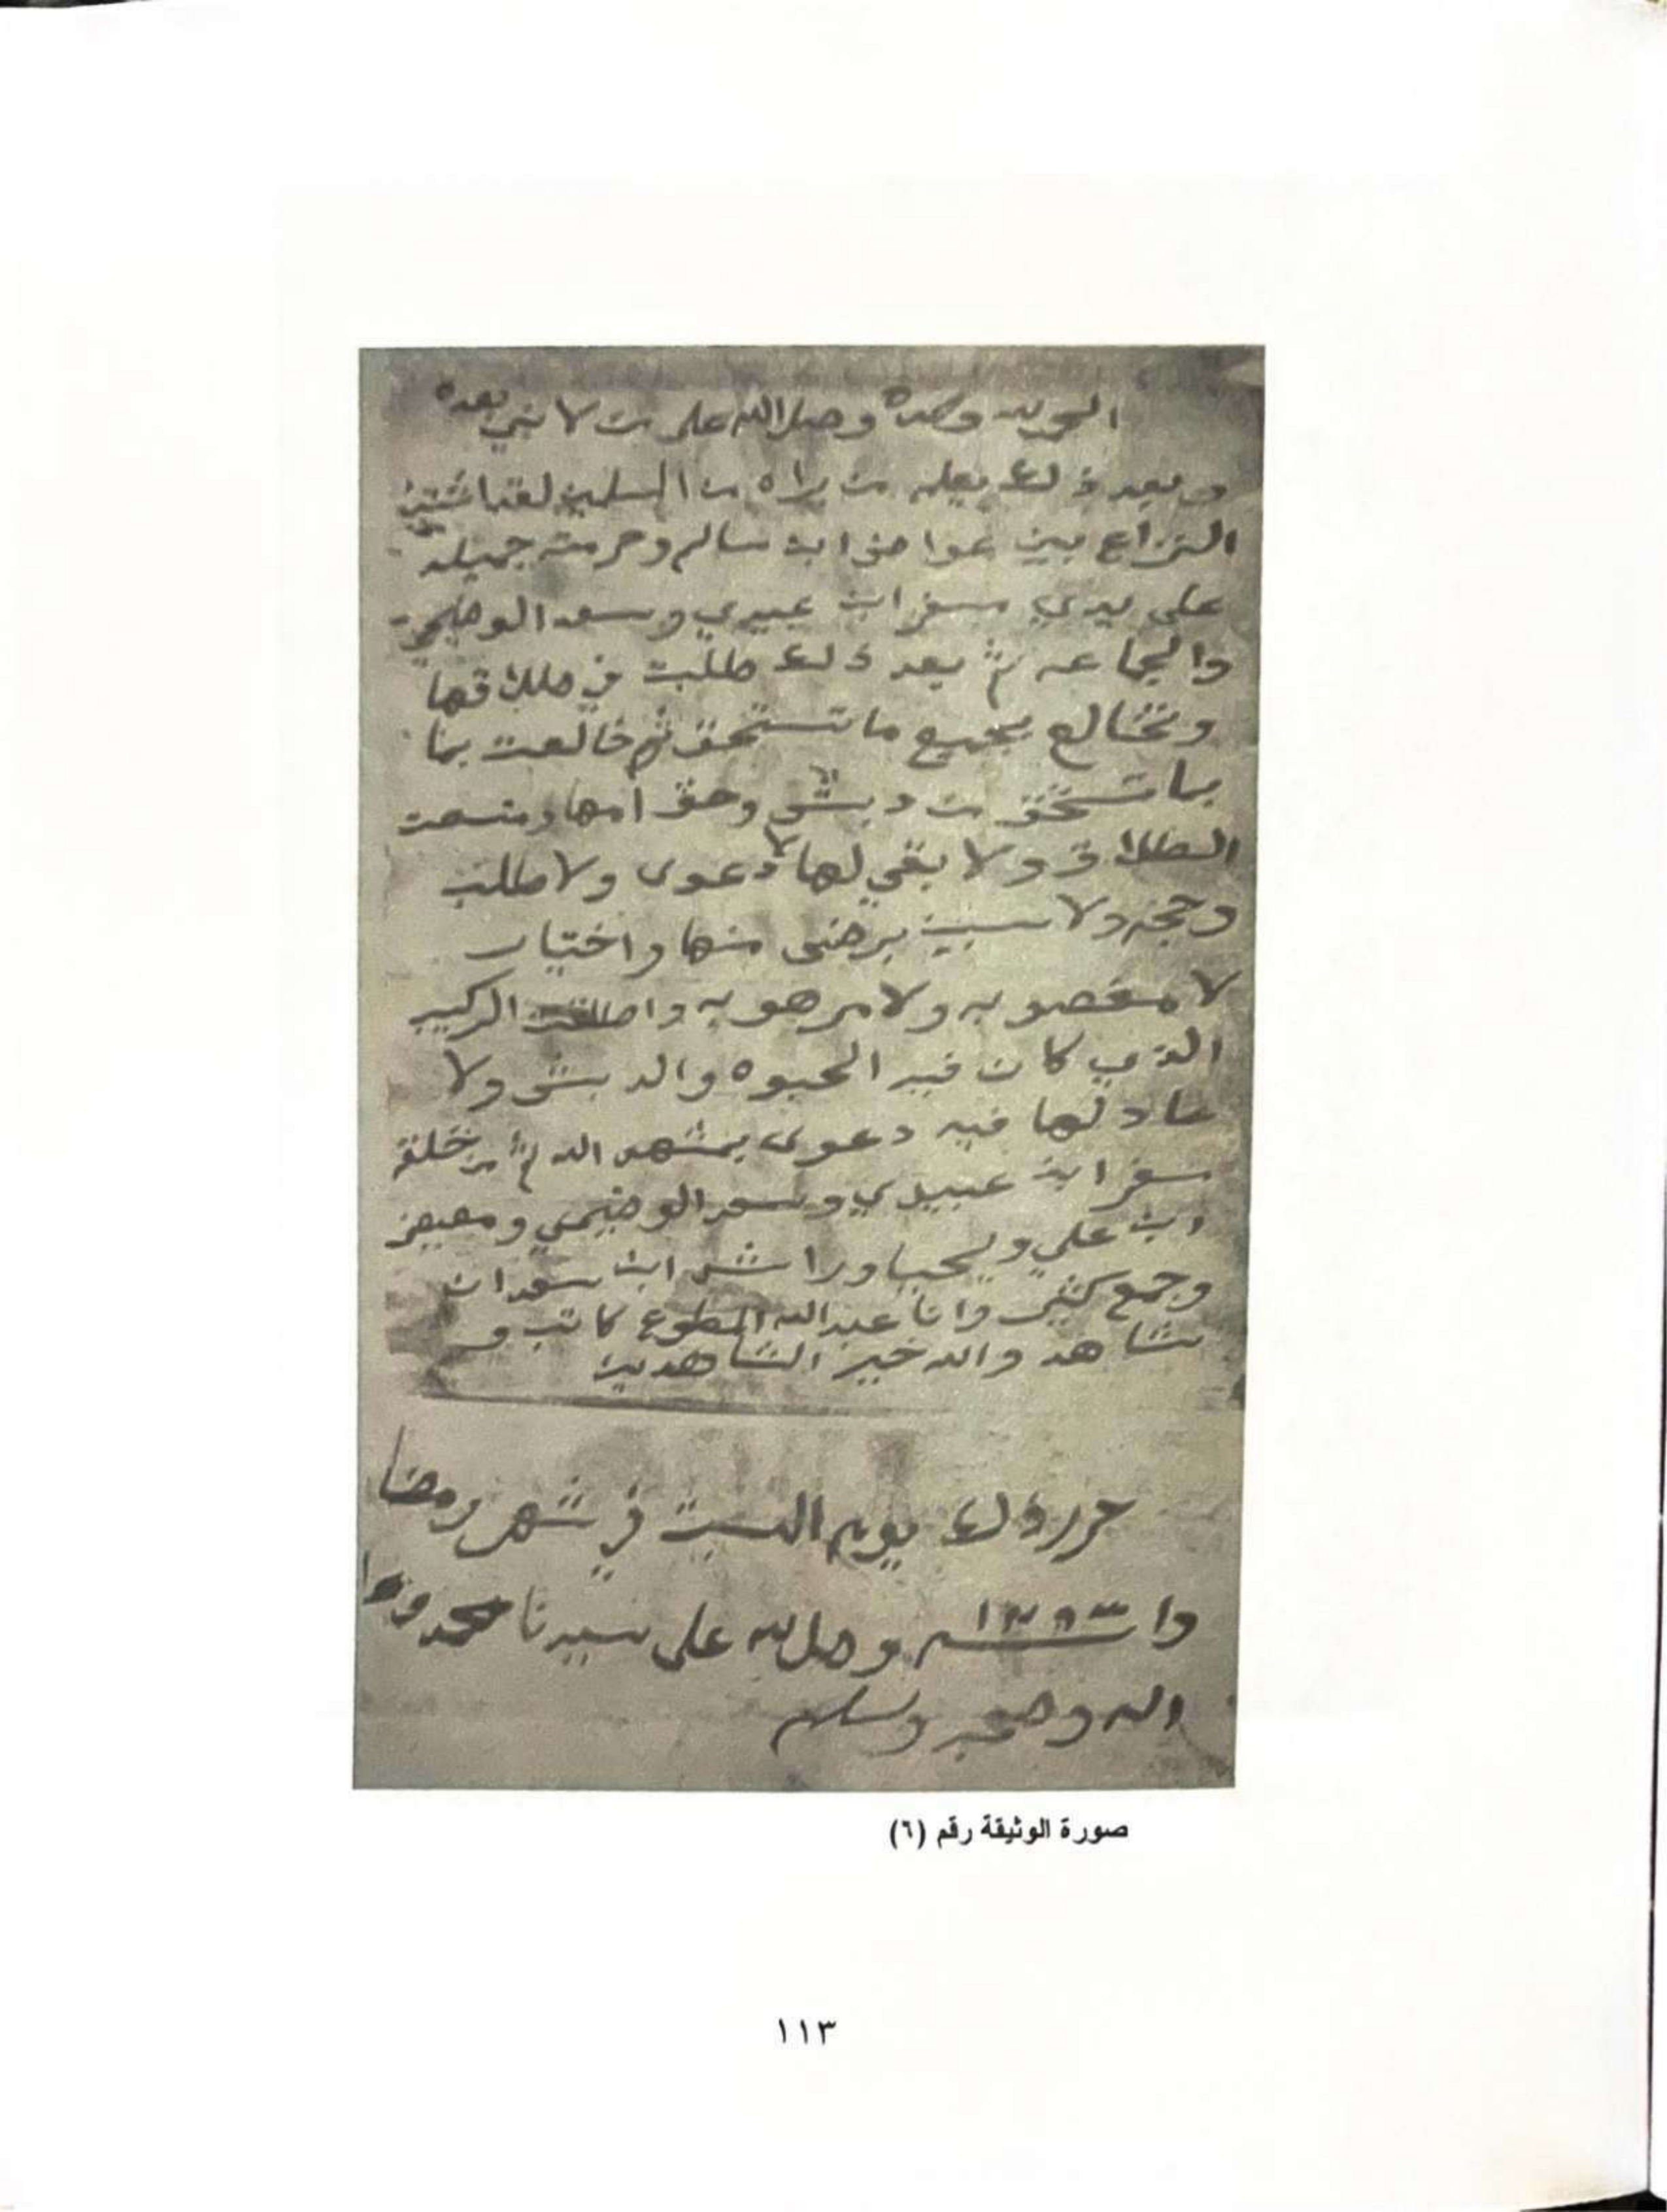 الحمد لله وحده وصلى الله على من لا نبي بعده
وبعد ذلك يعلم من يراه من المسلمين لقد اشتد
النزاع بين عواض ابن سالم وحرمته جميله
على يدي سفر ابن عبيدي وسعد الوضيمي
والجماعه ثم بعد ذلك طلبت في طلاقها
وتخالع بجميع ما تستحق ثم خالعت بما
بما تستحق من دبش وحق امها ومنسعت
الطلاق ولا بقي لها لا دعوى ولا طلب
وحجه ولا سبب برضى منها واختيار
لا مغصوبه ولا مرهوبه واطلقت الركيب
الذي كان فيه الحبوه والدبش ولا
عاد لها فيه دعوى بمشهد الله ثم من خلقه
سفر ابن عبيدي وسعد الوضيمي ومعيض
ابن علي ويحيا وراشد ابن سعدان
وجمع كثير وانا عبدالله المطوع كاتب و
شاهد والله خير الشاهدين
حرر ذلك يوم السبت في شهر رمضا
وصل الله على سيدنا محمد وعلا
اله وصحبه وسلم
صورة الوثيقة رقم (٦)
١١٣